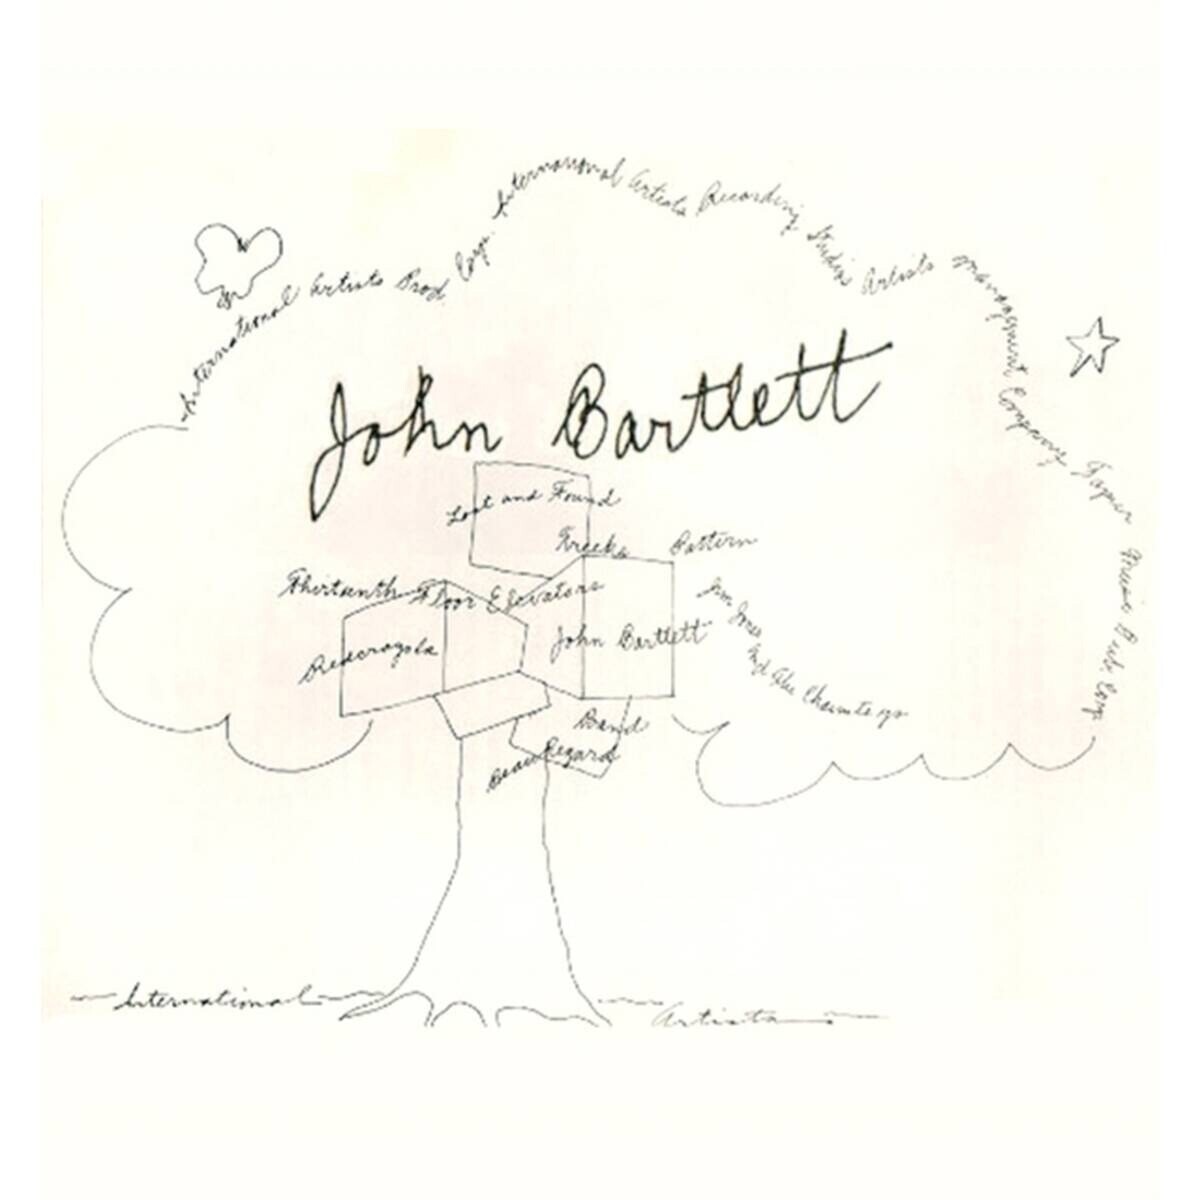 International Artists Prod. Corp.
International Artists Recording Studios
Artists Management Company
Tapier Music Pub. Corp.
John Bartlett
Lost and Found
Kreeks
Pattern
Thirteenth Floor Elevators
Redcrayola
John Bartlett
Jim Jones and The Chaunteys
Band
Beau Regard
International Artists